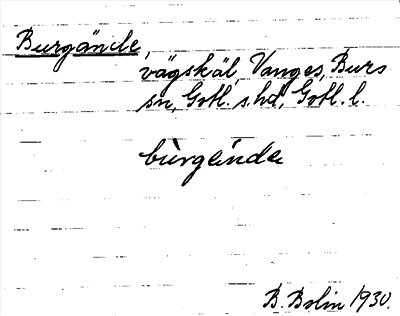 Burgände,
vägskäl, Vanges, Burs
sn, Gotl. s. hd, Gotl. l.
bùrgända
B. Bolin 1930.